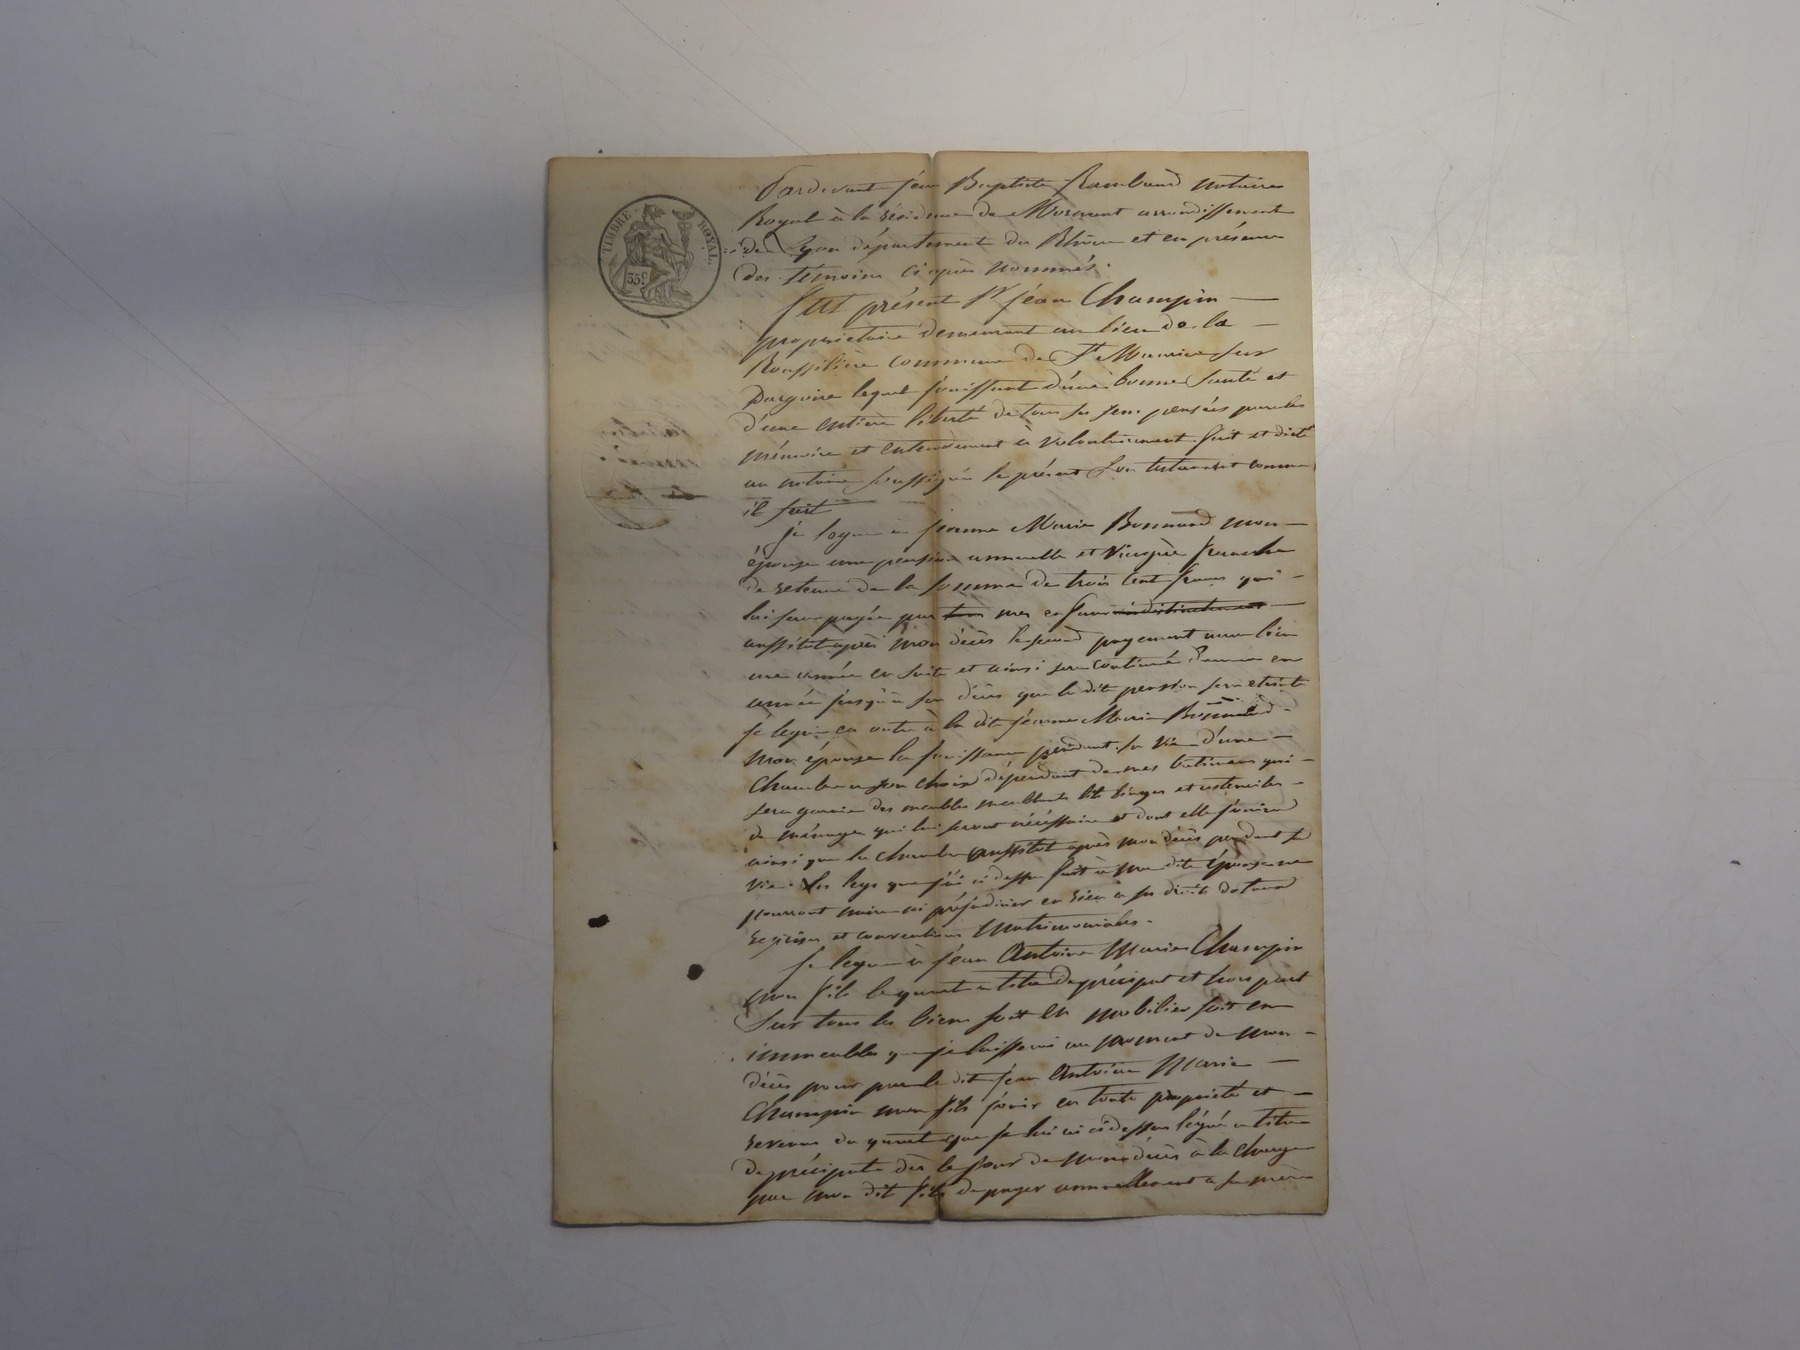 TIMBRE ROYAL
35c
Pardevant jean Baptiste Rambaud notaire
Royal à la résidence de Mornant arrondissement
de Lyon département du Rhône et en présence
des témoins ci après nommés.
Fut présent Sr jean Champin
propriétaire demeurant au lieu de la
Roussilière commune de St Maurice sur
Dargoire lequel jouissant d'une bonne santé et
d'une entière liberté de tous ses sens pensées parole
mémoire et entendement a volontairement fait et dicté
au notaire soussigné le présent son testament comme
il suit
je legue a jeanne Marie Bonnard mon
épouse une pension annuelle et viagère franche
de retenue de la somme de trois cent francs qui
lui sera payée par tous mes enfans indistinctement
aussitot après mon décès le second payement aura lieu
une année en suite et ainsi sera continué d'année en
année jusqu'à son décès que la dite pension sera eteinte
je legue en outre à la dite jeanne Marie Bonnard
mon épouse la jouissance pendant sa vie d'une
chambre a son choix dépendant de mes batimens qui
sera garnie des meubles meublants lit linges et ustensiles
de ménage qui lui seront nécéssaire et dont elle jouira
ainsi que la chambre aussitot après mon décès pendant sa
vie. Les legs que j'ai ci dessus fait à ma dite épouse ne
pourront nuire ni préjudicier en rien à ses droits dotaux
reprises et conventions matrimoniales.
je legue à jean Antoine Marie Champin
mon fils le quart a titre de préciput et hors part
sur tous les biens soit en mobilier soit en
immeubles que je laisserai au moment de mon
décès pour par le dit jean Antoine Marie
Champin mon fils jouir en toute propriété et
revenus du quart que je lui ai ci dessus légué a titre
de préciput dès le jour de mon décès à la charge
par mon dit fils de payer annuellement a sa mère